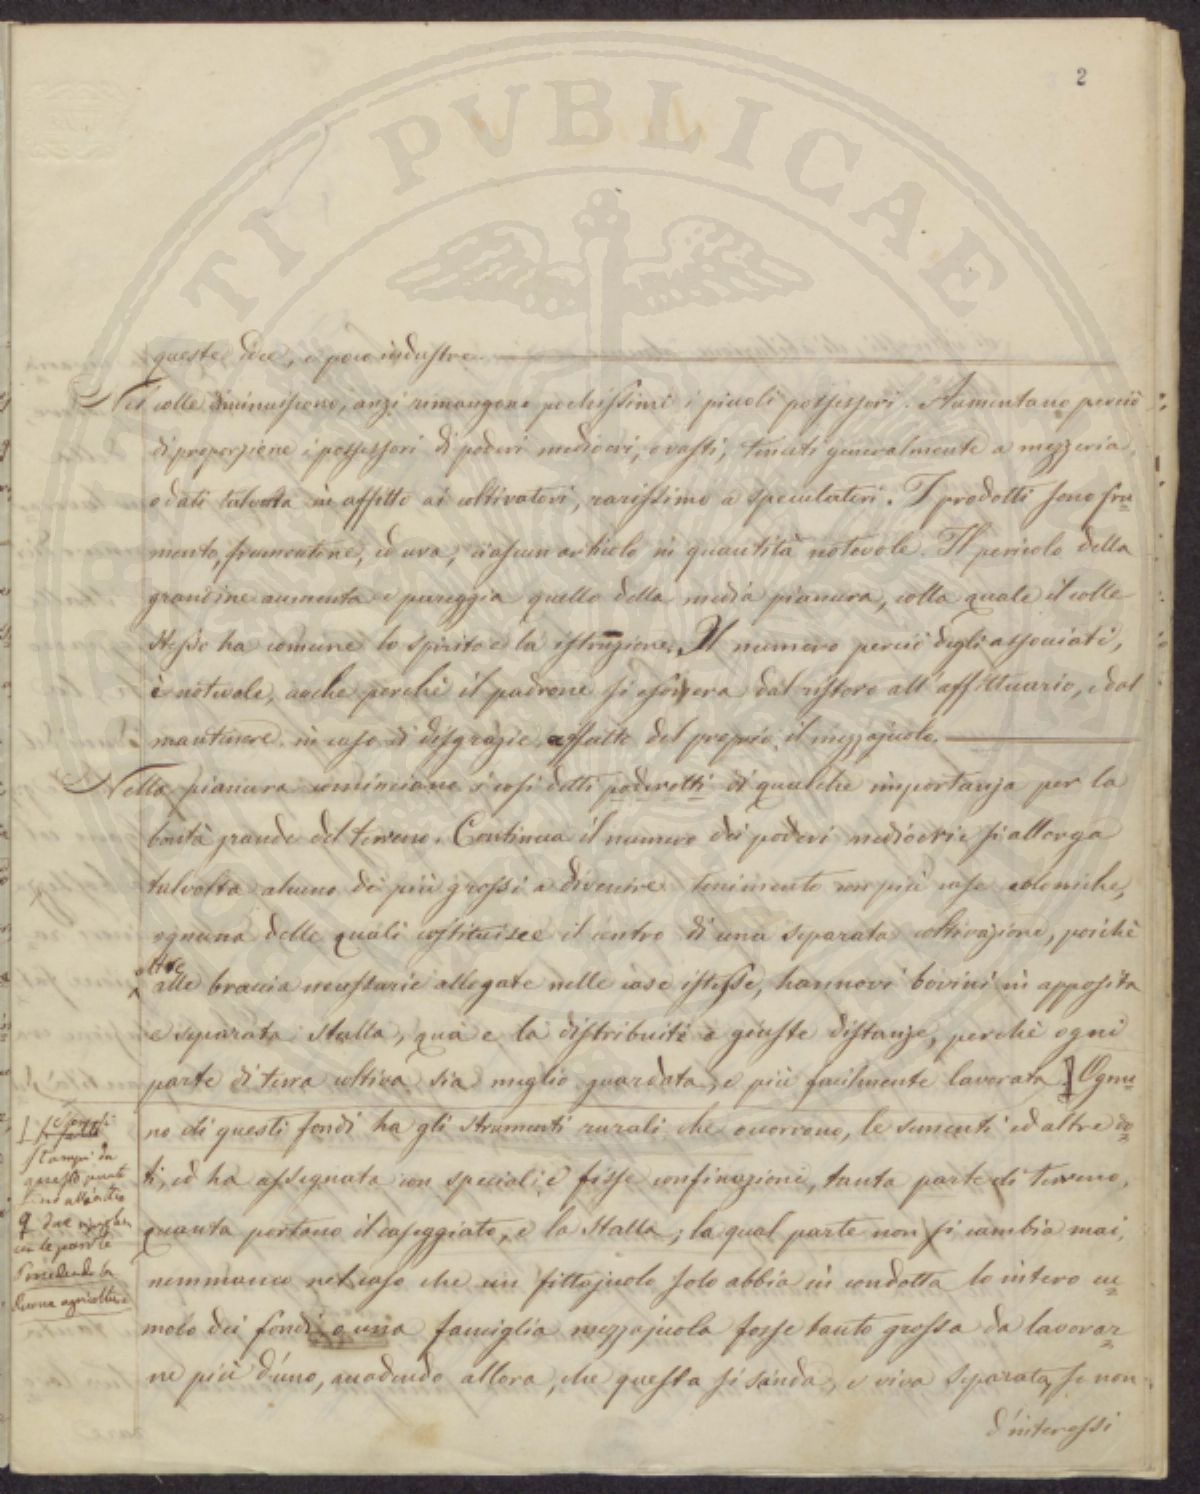 2
TI PVBLICAE
queste idee, e poco industre.
Nel colle diminuiscono, anzi rimangono pochissimi i piccoli possessori. Aumentano perciò
di proporzione i possessori di poderi mediocri, e vasti, tenuti generalmente a mezzeria,
o dati talvolta in affitto ai coltivatori, rarissimo a speculatori. I prodotti sono fru=
mento, frumentone, ed uva, ciascun articolo in quantità notevole. Il pericolo della
grandine aumenta e pareggia quello della media pianura, colla quale il colle
stesso ha comune lo spirito e la istruzione. Il numero perciò degli associati,
è notevole, anche perchè il padrone si esonera dal ristoro all'affittuario, e dal
mantenere in caso di disgrazie, affatto del proprio, il mezzajuolo.
Nella pianura cominciano i così detti poderetti di qualche importanza per la
bontà grande del terreno. Continua il numero dei poderi mediocri e si allarga
talvolta alcuno dei più grossi a divenire tenimento con più case coloniche,
ognuna delle quali costituisce il centro di una separata coltivazione, poichè
oltre
alle braccia necessarie allogate nelle case istesse, hannovi bovini in apposita
e separata stalla, qua e là distribuiti a giuste distanze, perchè ogni
parte di terra coltiva sia meglio guardata, e più facilmente lavorata.] Ognu=
no di questi fondi ha gli strumenti rurali che occorrono, le sementi ed altre do=
ti, ed ha assegnata con speciali e fisse confinazioni, tanta parte di terreno,
quanta portano il caseggiato, e la stalla; la qual parte non si cambia mai,
nemmanco nel caso che un fittajuolo solo abbia in condotta lo intero cu=
molo dei fondi, o una famiglia mezzajuola fosse tanto grossa da lavorar=
ne più d'uno, accadendo allora, che questa si scinda, e viva separata, se non
d'interessi
stampi da
questo punto
fino all'altro
con le parole
Procedendo la
buona agricoltura